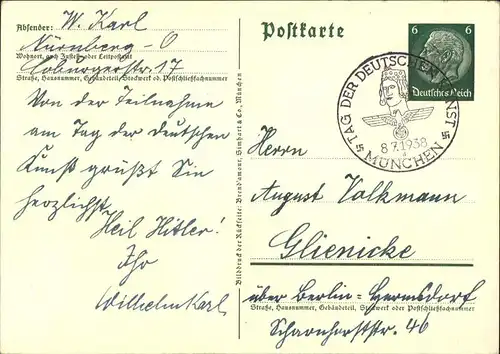 Absender: W. Karl
Nürnberg-O
Wohnort, auch Zustell- oder Leitpostamt
Coburgerstr. 17
Straße, Hausnummer, Gebäudeteil, Stockwerk od. Postschließfachnummer
Von der Teilnahme
am Tag der deutschen
Kunst grüßt Sie
herzlichst
Heil Hitler!
Ihr
Wilhelm Karl
Bilddruck der Rückseite: Brend'amour, Simhart & Co., München
Postkarte
6 6
Deutsches Reich
TAG DER DEUTSCHEN KUNST
8.7.1938
MÜNCHEN
Herrn
August Volkmann
Glienicke
über Berlin=Hermsdorf
Straße, Hausnummer, Gebäudeteil, Stockwerk oder Postschließfachnummer
Scharnhorststr. 46